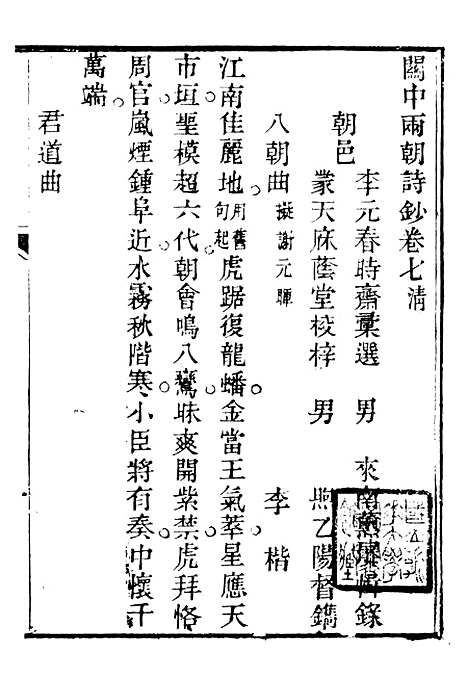 關中兩朝詩鈔卷七清
朝邑
李元春時齋彙選 男 來南薰屏偕錄
蒙天庥蔭堂校梓 男 煦乙陽督鐫
八朝曲擬謝元暉 李楷
江南佳麗地用舊句起虎踞復龍蟠金當王氣萃星應天
市垣聖模超六代朝會鳴八鸞昧爽開紫禁虎拜恪
周官嵐煙鍾阜近水霧秋階寒小臣將有奏中懷千
萬端
君道曲